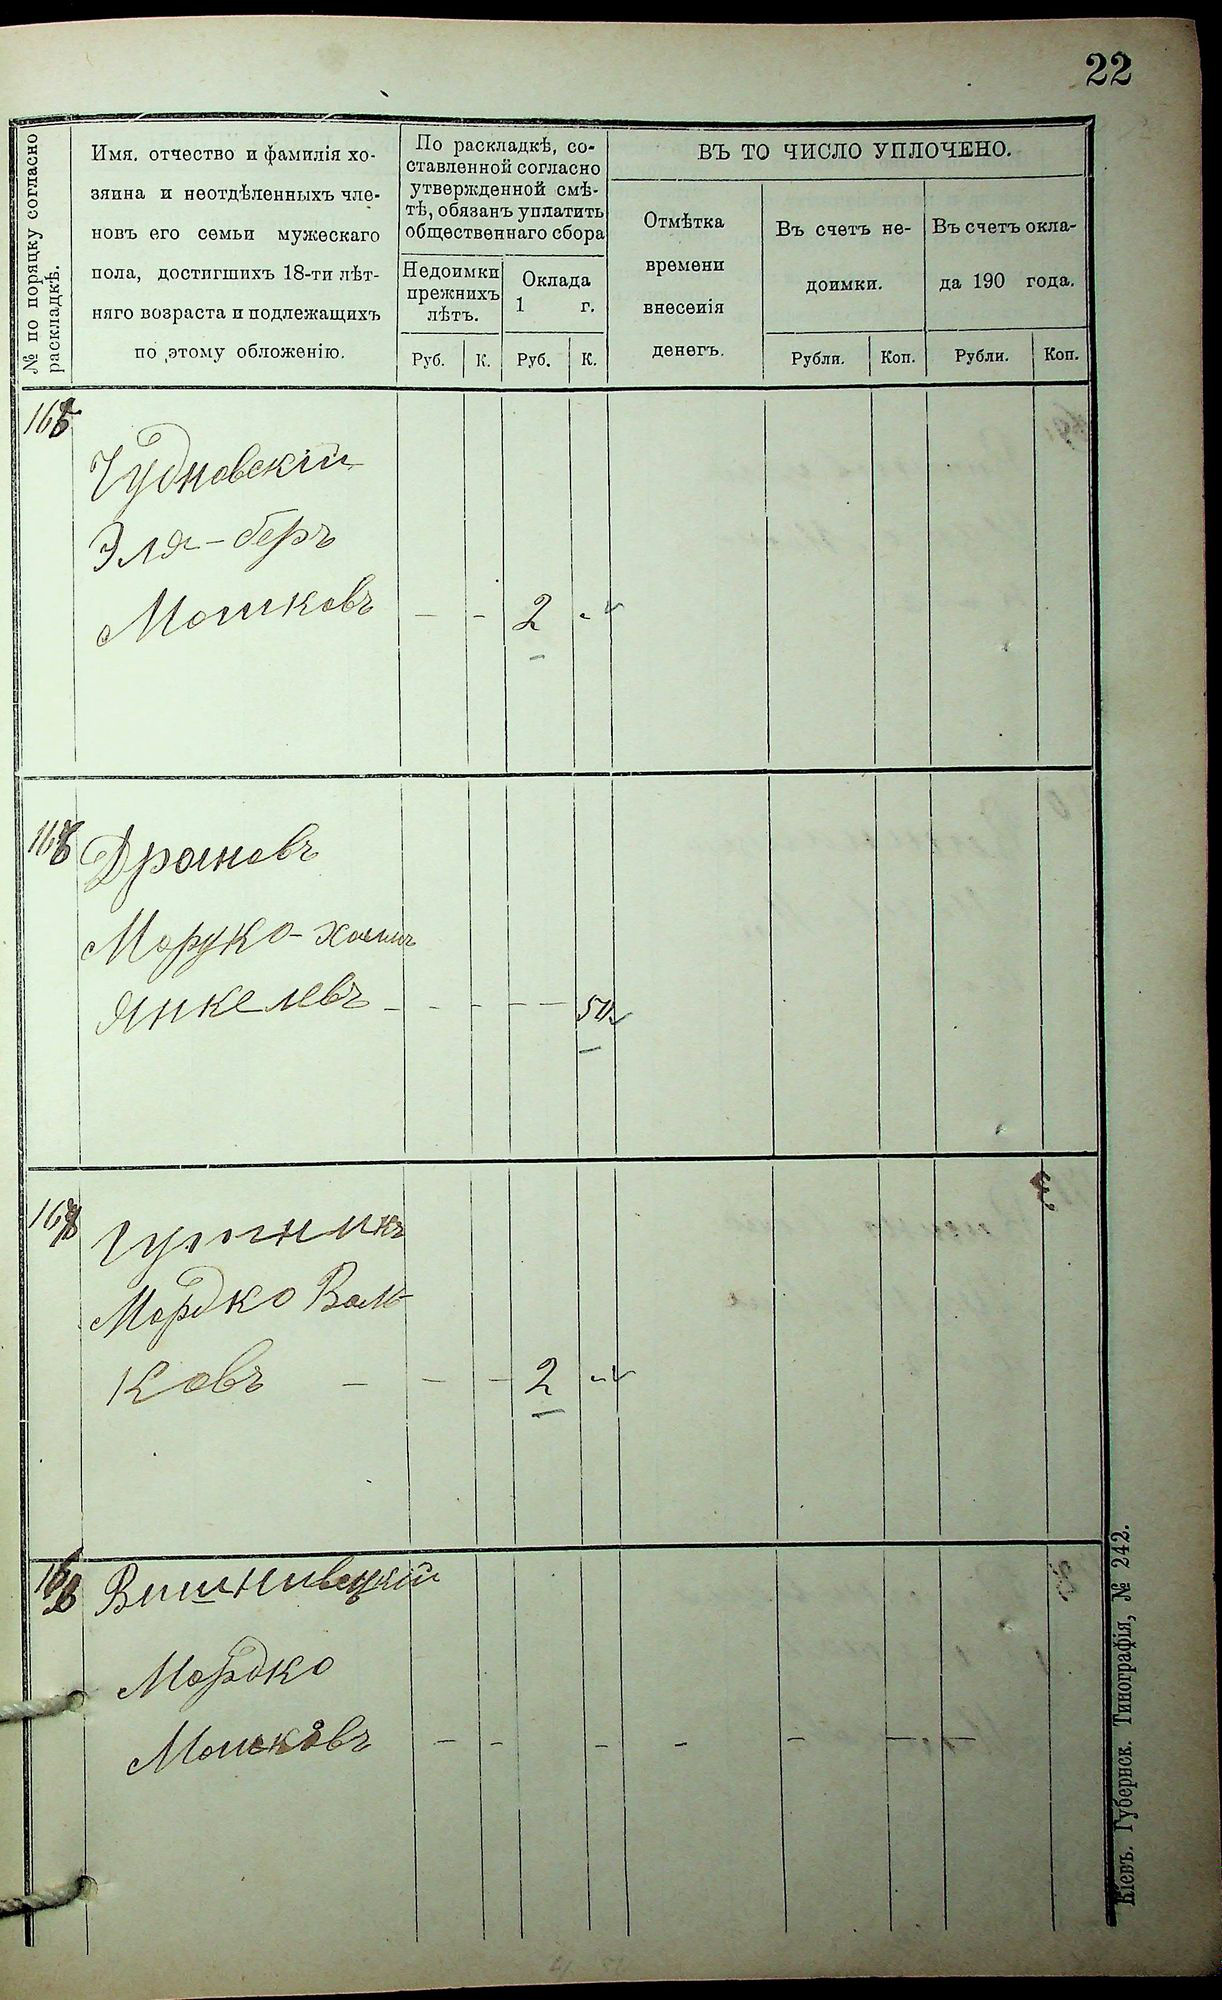 22
№ по порядку согласно раскладкѣ.
Имя, отчество и фамилія хо-
зяина и неотдѣленныхъ чле-
новъ его семьи мужескаго
пола, достигшихъ 18-ти лѣт-
няго возраста и подлежащихъ
по этому обложенію.
По раскладкѣ, со-
ставленной согласно
утвержденной смѣ-
тѣ, обязанъ уплатить
общественнаго сбора
Недоимки
прежнихъ
лѣтъ.
Оклада
1 г.
Руб. К. Руб. К.
ВЪ ТО ЧИСЛО УПЛОЧЕНО.
Отмѣтка
времени
внесенія
денегъ.
Въ счетъ не-
доимки.
Въ счетъ окла-
да 190 года.
Рубли. Коп. Рубли. Коп.
Чудновскій
Эля-беръ
Мошковъ — — 2 -
Драновъ
Моруко-хаимъ
Янкелевъ - - - — 50
Мордко Воль-
ковъ — — — 2 -
Вишнивецкій
Мордко
Мошковъ — - — - — — —
Кіевъ. Губернск. Типографія, № 242.